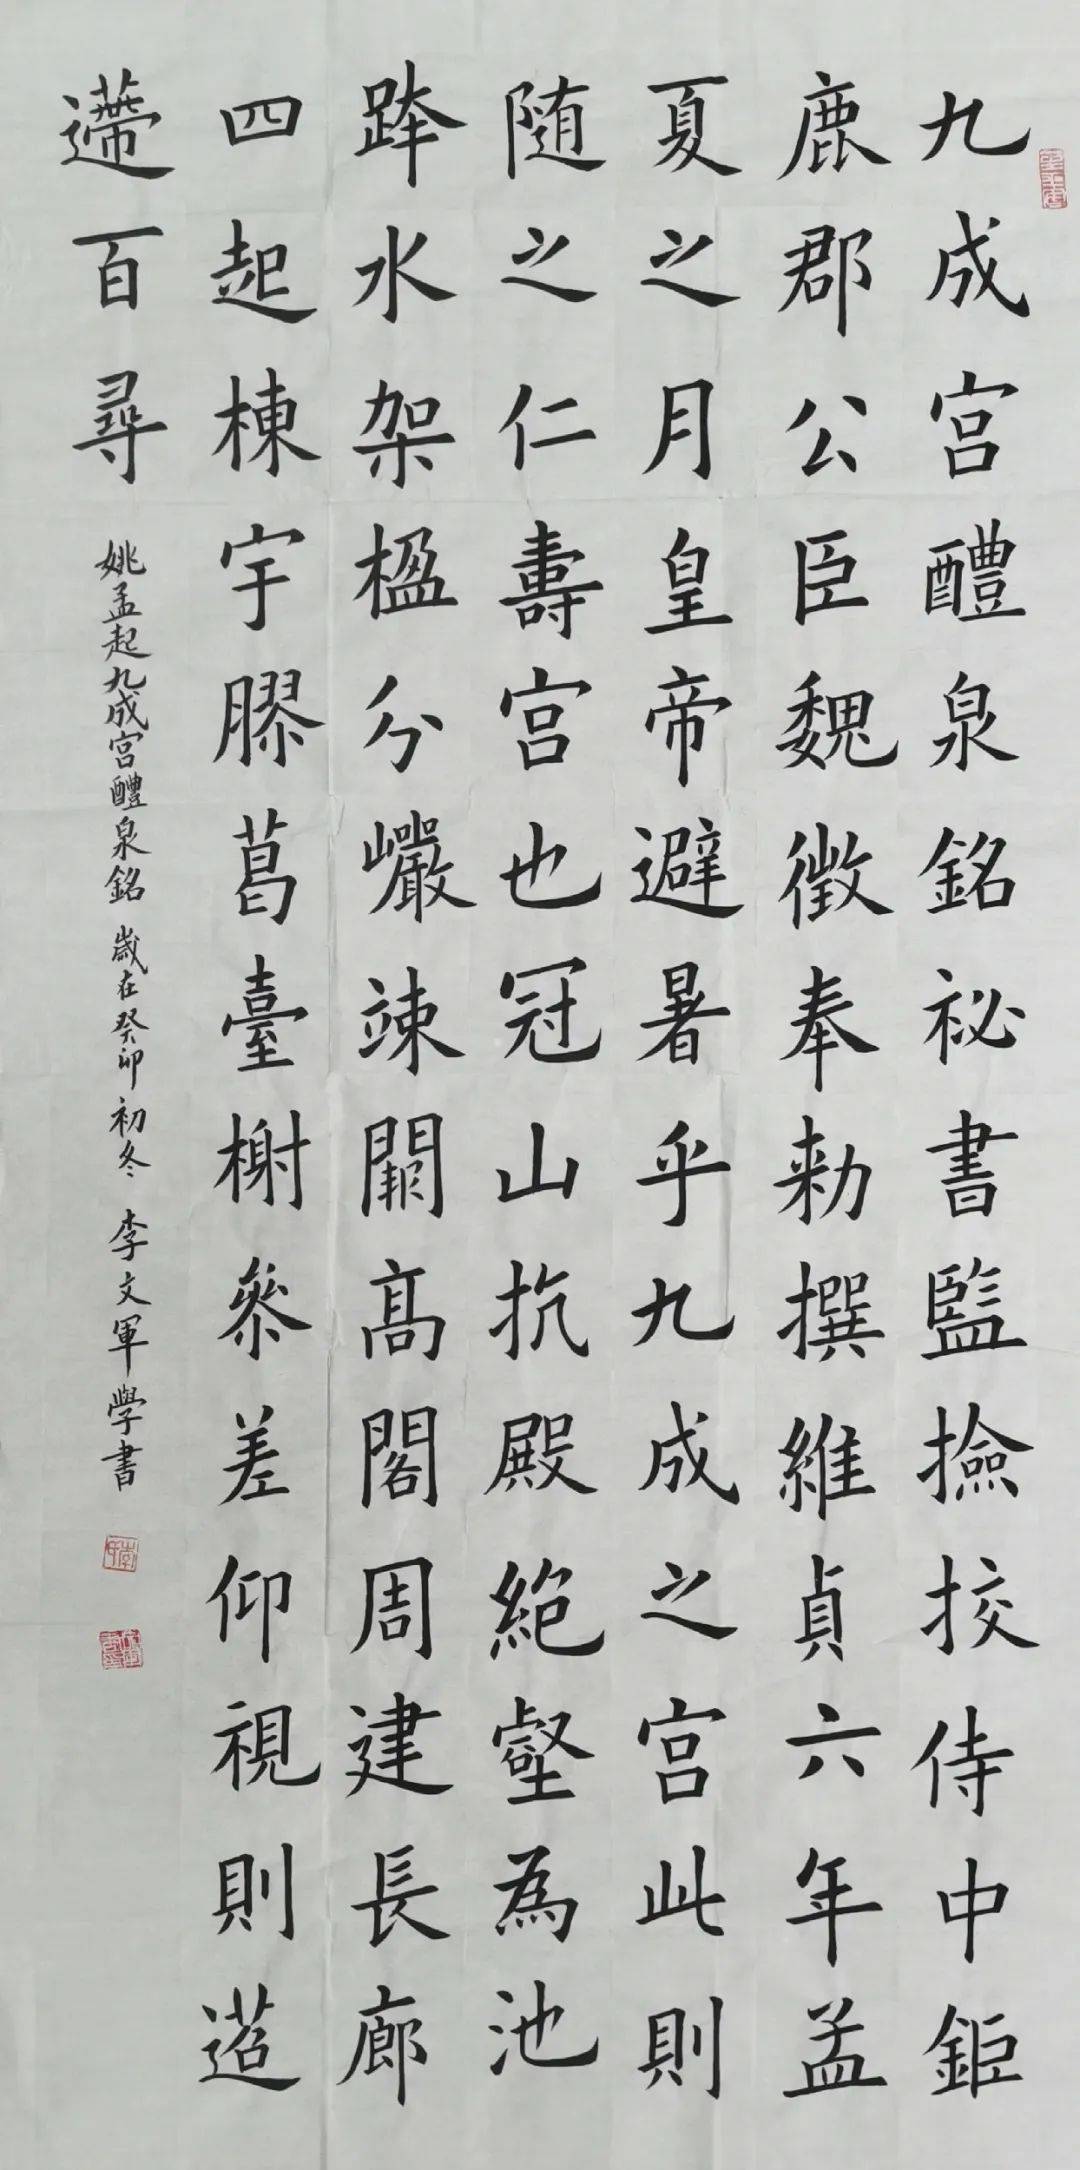 九成宫醴泉銘祕書監撿挍侍中鉅
鹿郡公臣魏徵奉勑撰維貞六年孟
夏之月皇帝避暑乎九成之宫此則
随之仁壽宫也冠山抗殿絶壑為池
跨水架楹分巖竦闕髙閣周建長廊
四起棟宇膠葛臺榭叅差仰視則迢
遰百尋
姚孟起九成宫醴泉銘 歲在癸卯初冬 李文軍學書